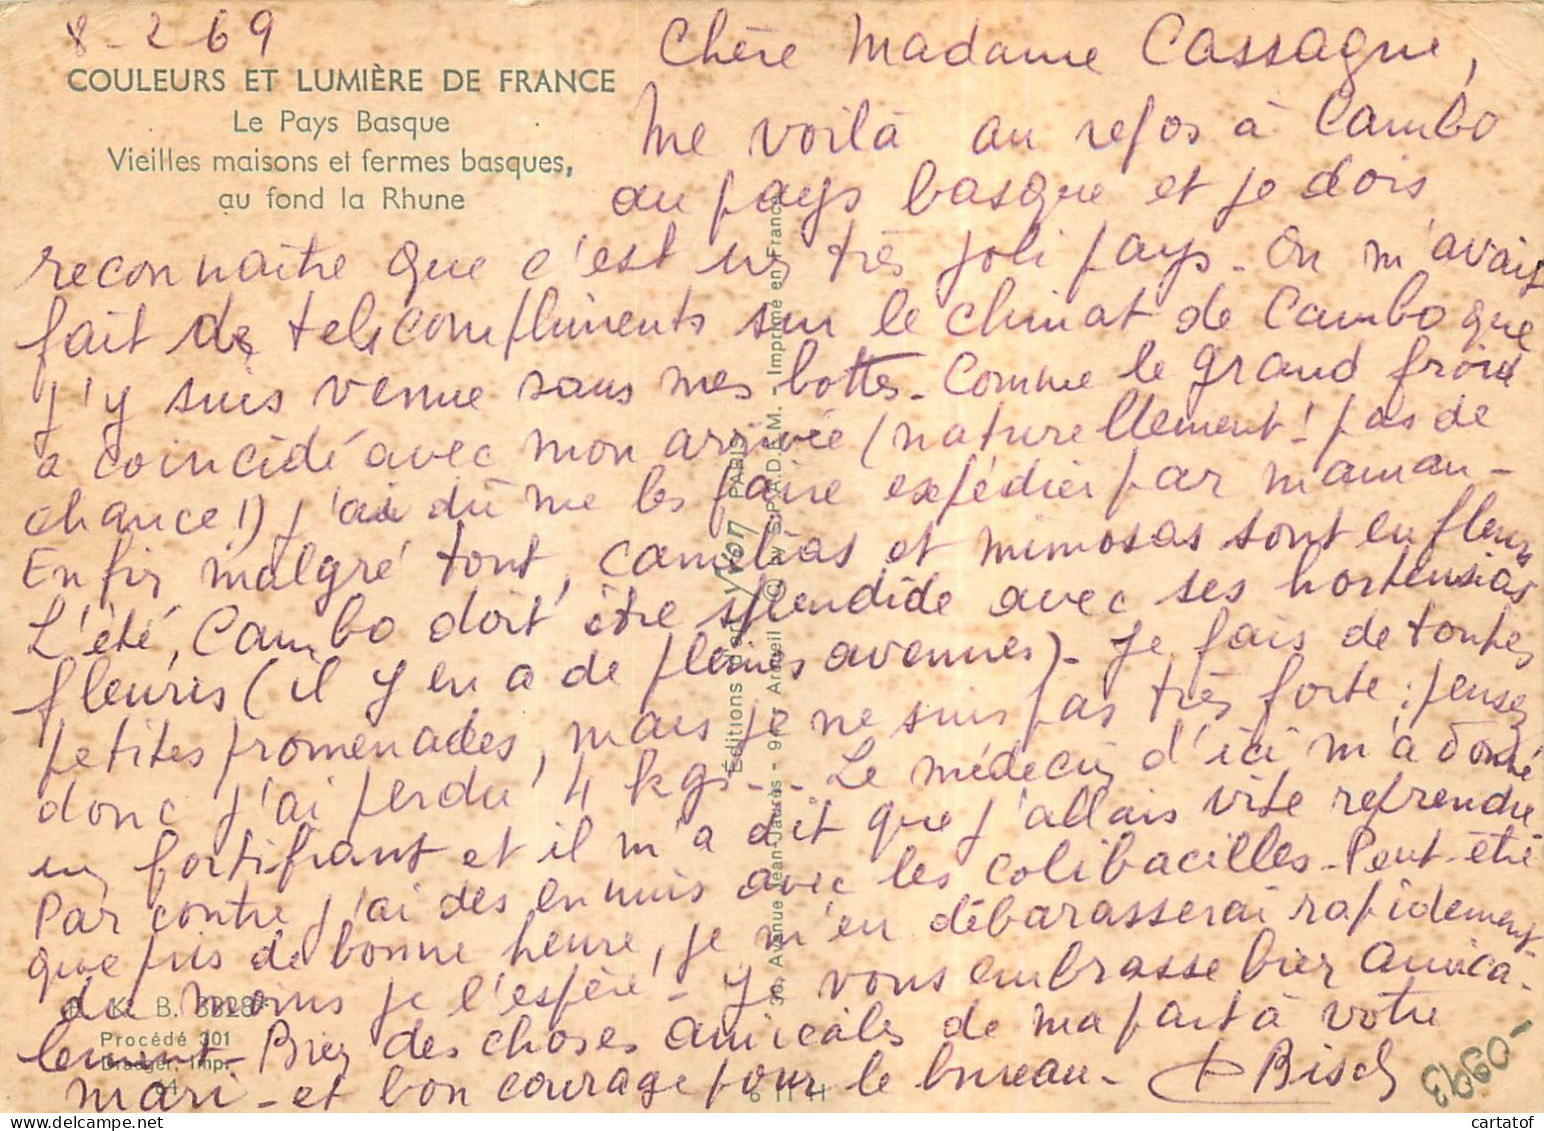 8-2-69
COULEURS ET LUMIÈRE DE FRANCE
Le Pays Basque
Vieilles maisons et fermes basques,
au fond la Rhune
Chère Madame Cassagne,
Me voilà au repos à Cambo
au pays basque et je dois
reconnaître que c'est un très joli pays. On m'avait
fait de tels compliments sur le climat de Cambo que
j'y suis venue sans mes bottes. Comme le grand froid
a coincidé avec mon arrivée (naturellement! pas de
chance!) j'ai dû me les faire expédier par maman -
Enfin malgré tout, camélias et mimosas sont en fleurs
L'été, Cambo doit être splendide avec ses hortensias
fleuris (il y en a de pleines avenues). Je fais de toutes
petites promenades, mais je ne suis pas très forte : pensez
donc j'ai perdu 4 kgs... Le médecin d'ici m'a donné
un fortifiant et il m'a dit que j'allais vite reprendre
Par contre j'ai des ennuis avec les colibacilles. Peut-être
que pris de bonne heure, je m'en débarasserai rapidement
du moins je l'espère - Je vous embrasse bien amica-
lement - Bien des choses amicales de ma part à votre
mari - et bon courage pour le bureau -
Bisch
Éditions d'art Yvon PARIS
30, Avenue Jean-Jaurès - 94 - Arcueil © by S.P.A.D.E.M. - Imprimé en France
K. B.
Procédé 301
Draeger, Imp.
6 11 41
cartatof